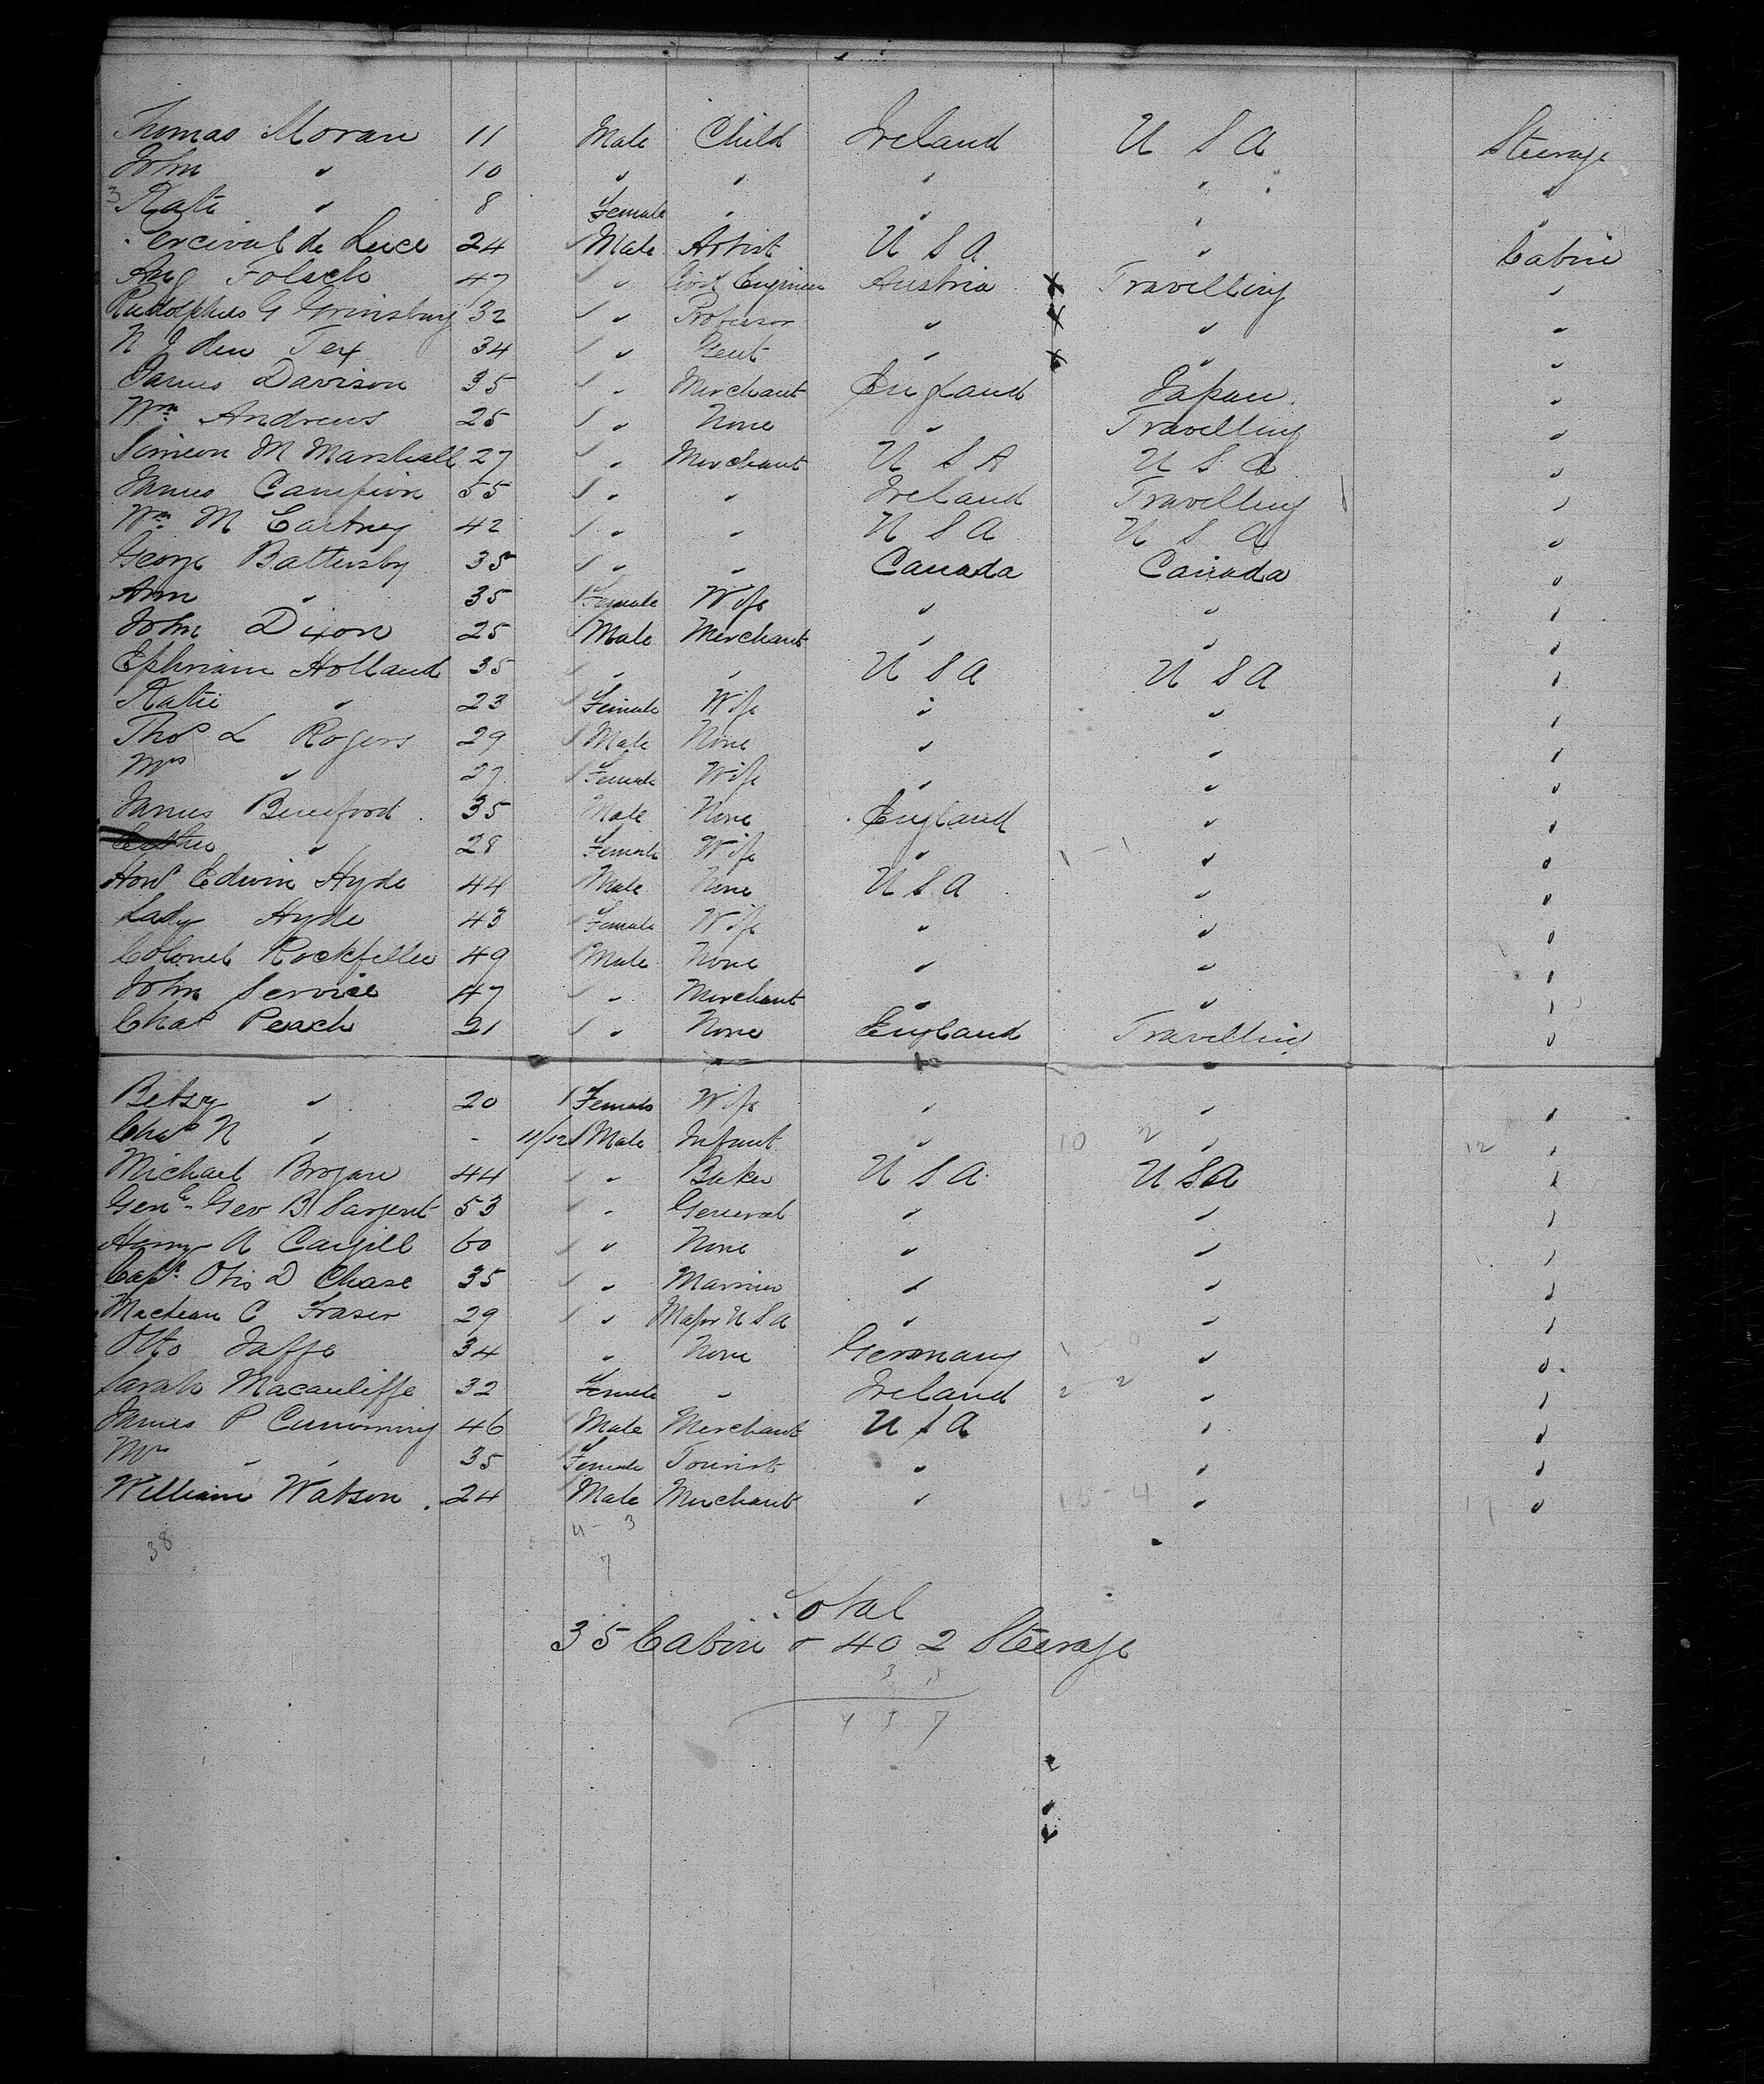 Thomas Moran 11 Male Child Ireland U S A Steerage
John " 10 " " " " "
3 Kate " 8 Female " " " "
Percival de Luce 24 Male Artist U S A " Cabin
Aug Folsch 47 " Civil Engineer Austria x Travelling "
Rudolphus G Grinsburg 32 " Professor " x " "
N J den Tex 34 " Gent " x " "
James Davison 35 " Merchant England Japan "
Wm Andrews 25 " None " Travelling "
Simeon M Marshall 27 " Merchant U S A U S A "
James Campion 55 " " Ireland Travelling "
Wm McCartney 42 " " U S A U S A "
George Battersby 35 " " Canada Canada "
Ann " 35 Female Wife " " "
John Dixon 25 Male Merchant " " "
Ephriam Holland 35 " " U S A U S A "
Katie " 23 Female Wife " " "
Thos L Rogers 29 Male None " " "
Mrs " 27 Female Wife " " "
James Beresford 35 Male None England " "
" 28 Female Wife " 1 - 1 " "
Honl Edwin Hyde 44 Male None U S A " "
Lady Hyde 43 Female Wife " " "
Colonel Rockfeller 49 Male None " " "
John Service 47 " Merchant " " "
Chas Peach 21 " None England Travelling "
Betsy " 20 Female Wife " " "
Chas N " - 11/12 Male Infant " 10 2 " 12 "
Michael Brogan 44 " Baker U S A U S A "
Genl Geo B Sargent 53 " General " " "
Henry A Cargill 60 " None " " "
Capt Otis D Chase 35 " Marriner " " "
Maclean C Fraser 29 " Major U S A " " "
Otto Jaffe 34 " None Germany " "
Sarah Macauliffe 32 Female " Ireland 2 2 " "
James P Cumming 46 Male Merchant U S A " "
Mrs " " 35 Female Tourist " " "
William Watson 24 Male Merchant " 15 - 4 " "
38 4 - 3
7
Total
35 Cabin & 402 Steerage
3 5
4 3 7